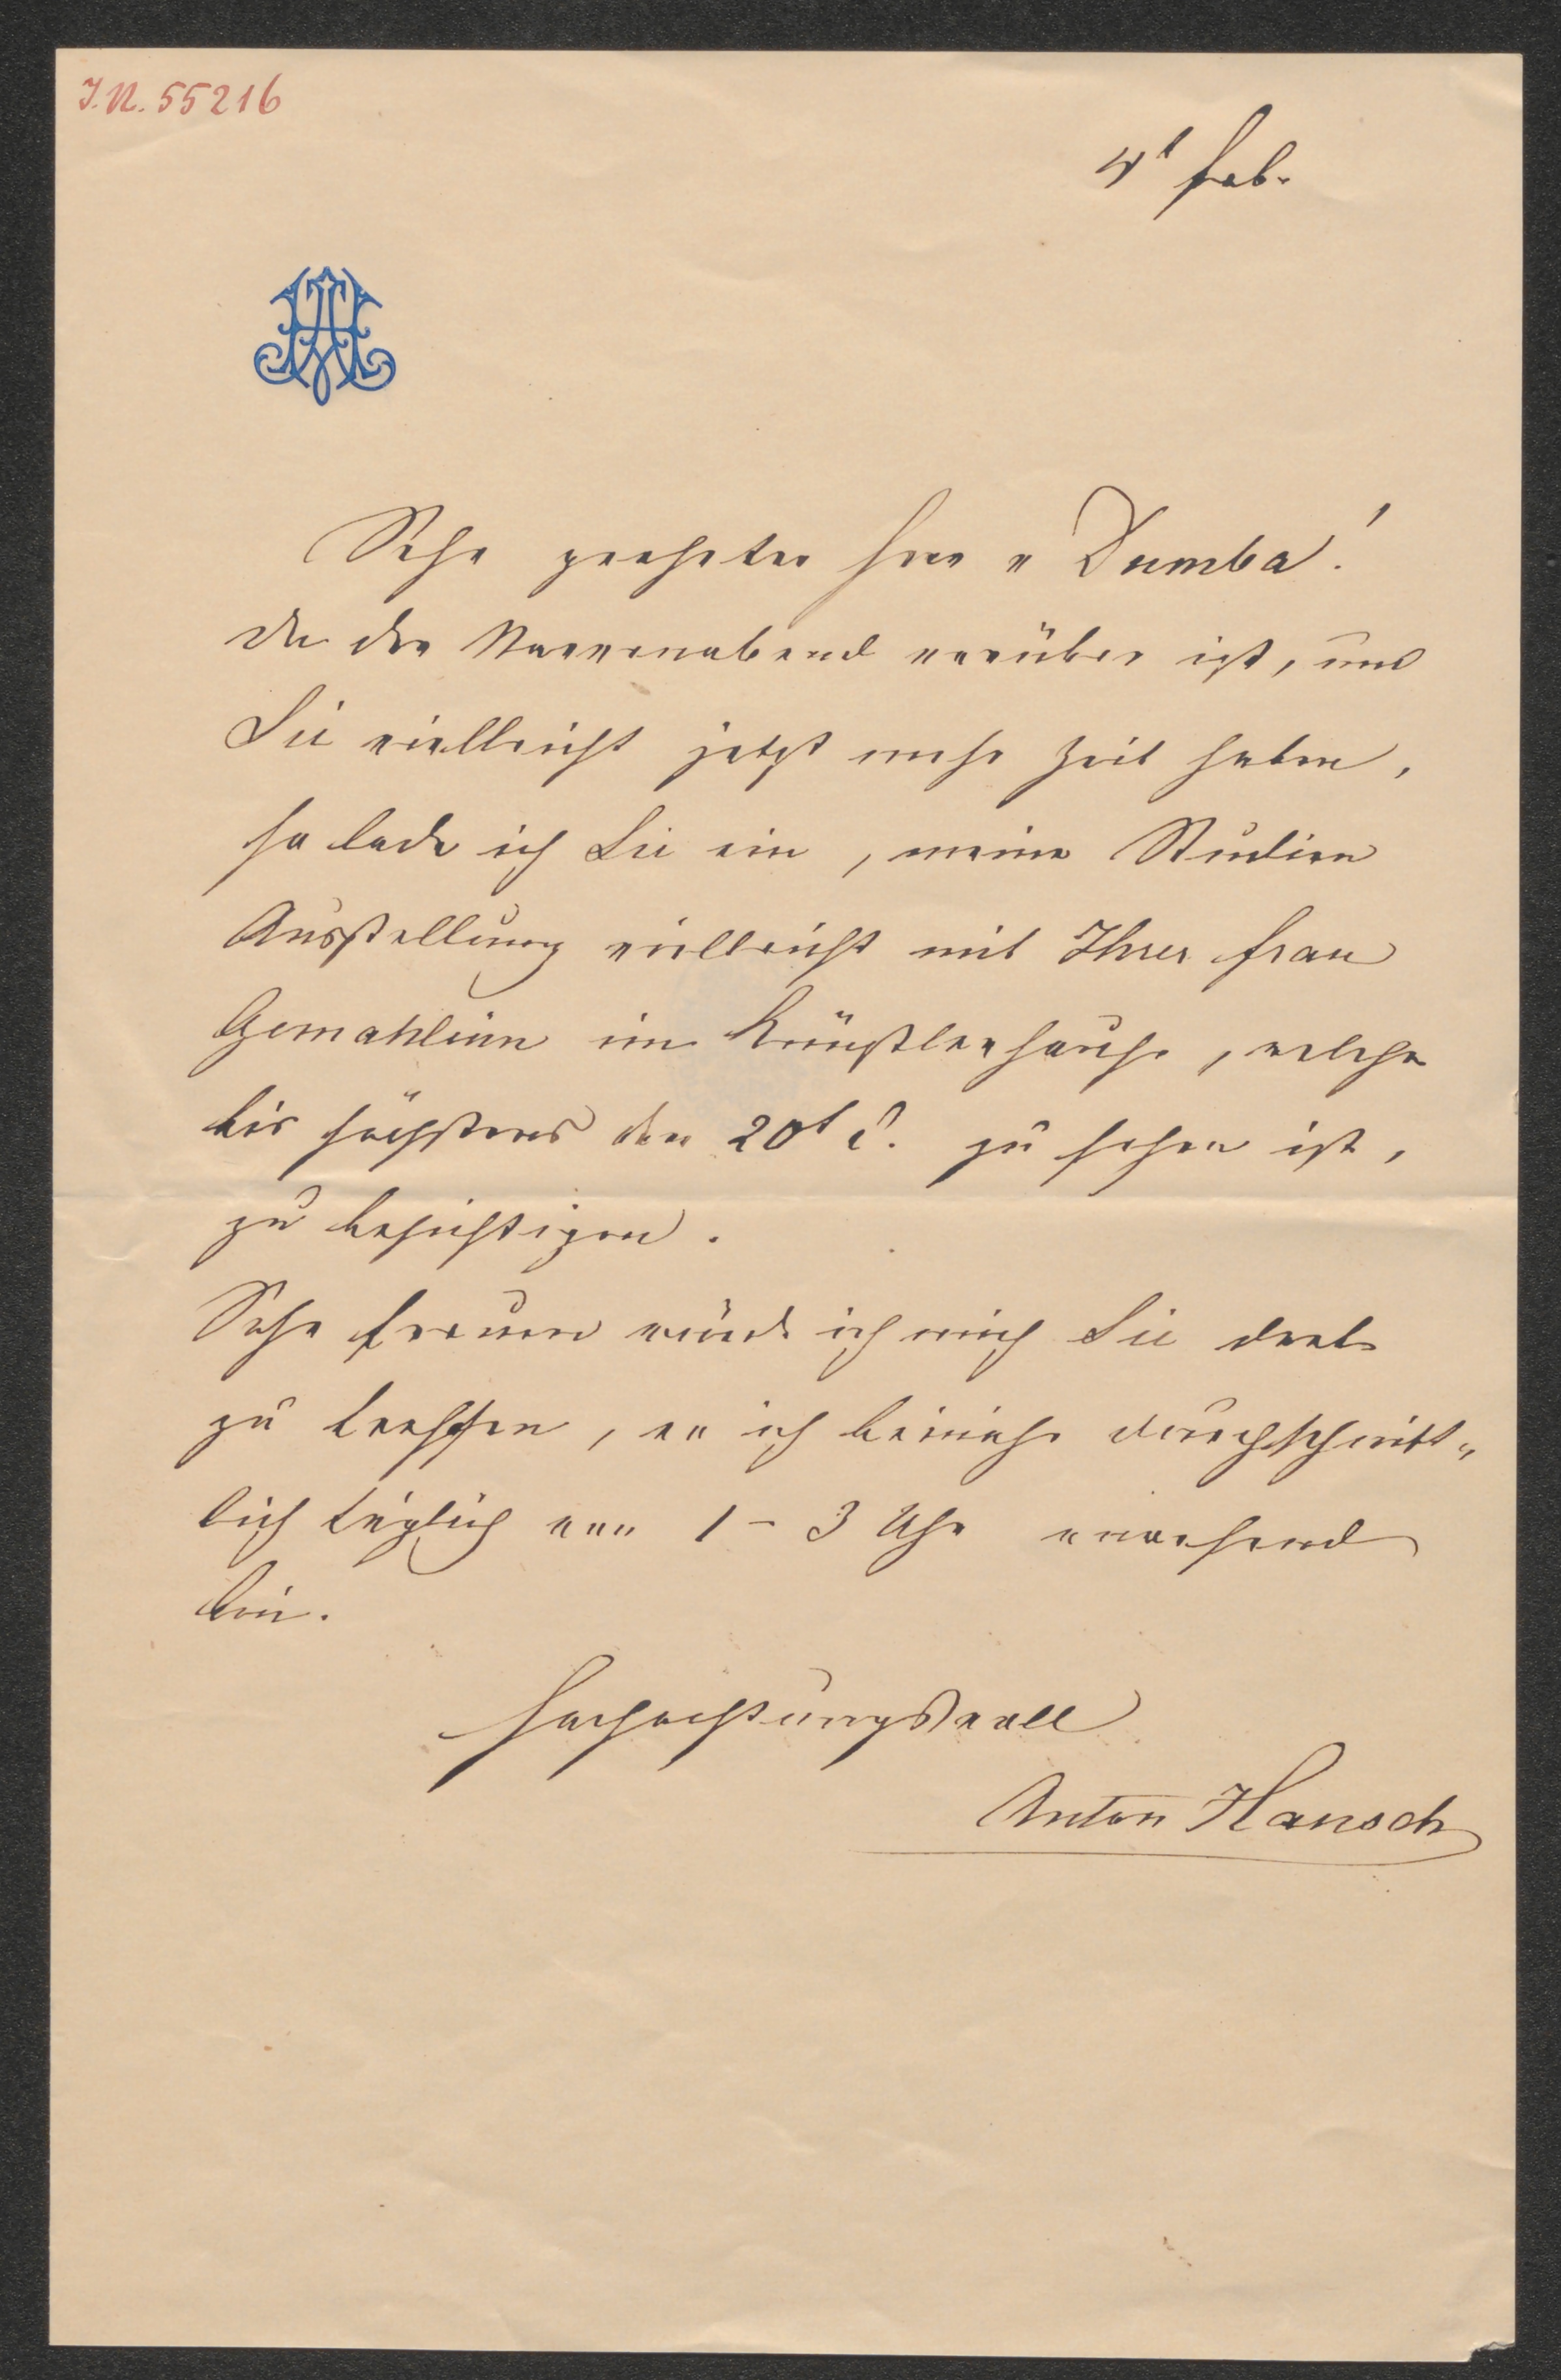 J.N. 55216
4t Feb.
AH
Sehr geehrter Herr v Dumba!
Da der Narrenabend vorüber ist, und
Sie vielleicht jetzt mehr Zeit haben,
so lade ich Sie ein, meine Studien
Ausstellung vielleicht mit Ihrer Frau
Gemahlinn im Künstlerhause, welche
bis höchstens den 20t d. zu sehen ist,
zu besichtigen.
Sehr freuen würde ich mich Sie dort
zu treffen, wo ich beinahe durchschnitt„
lich täglich von 1–3 Uhr anwesend
bin.
Hochachtungsvoll
Anton Hansch